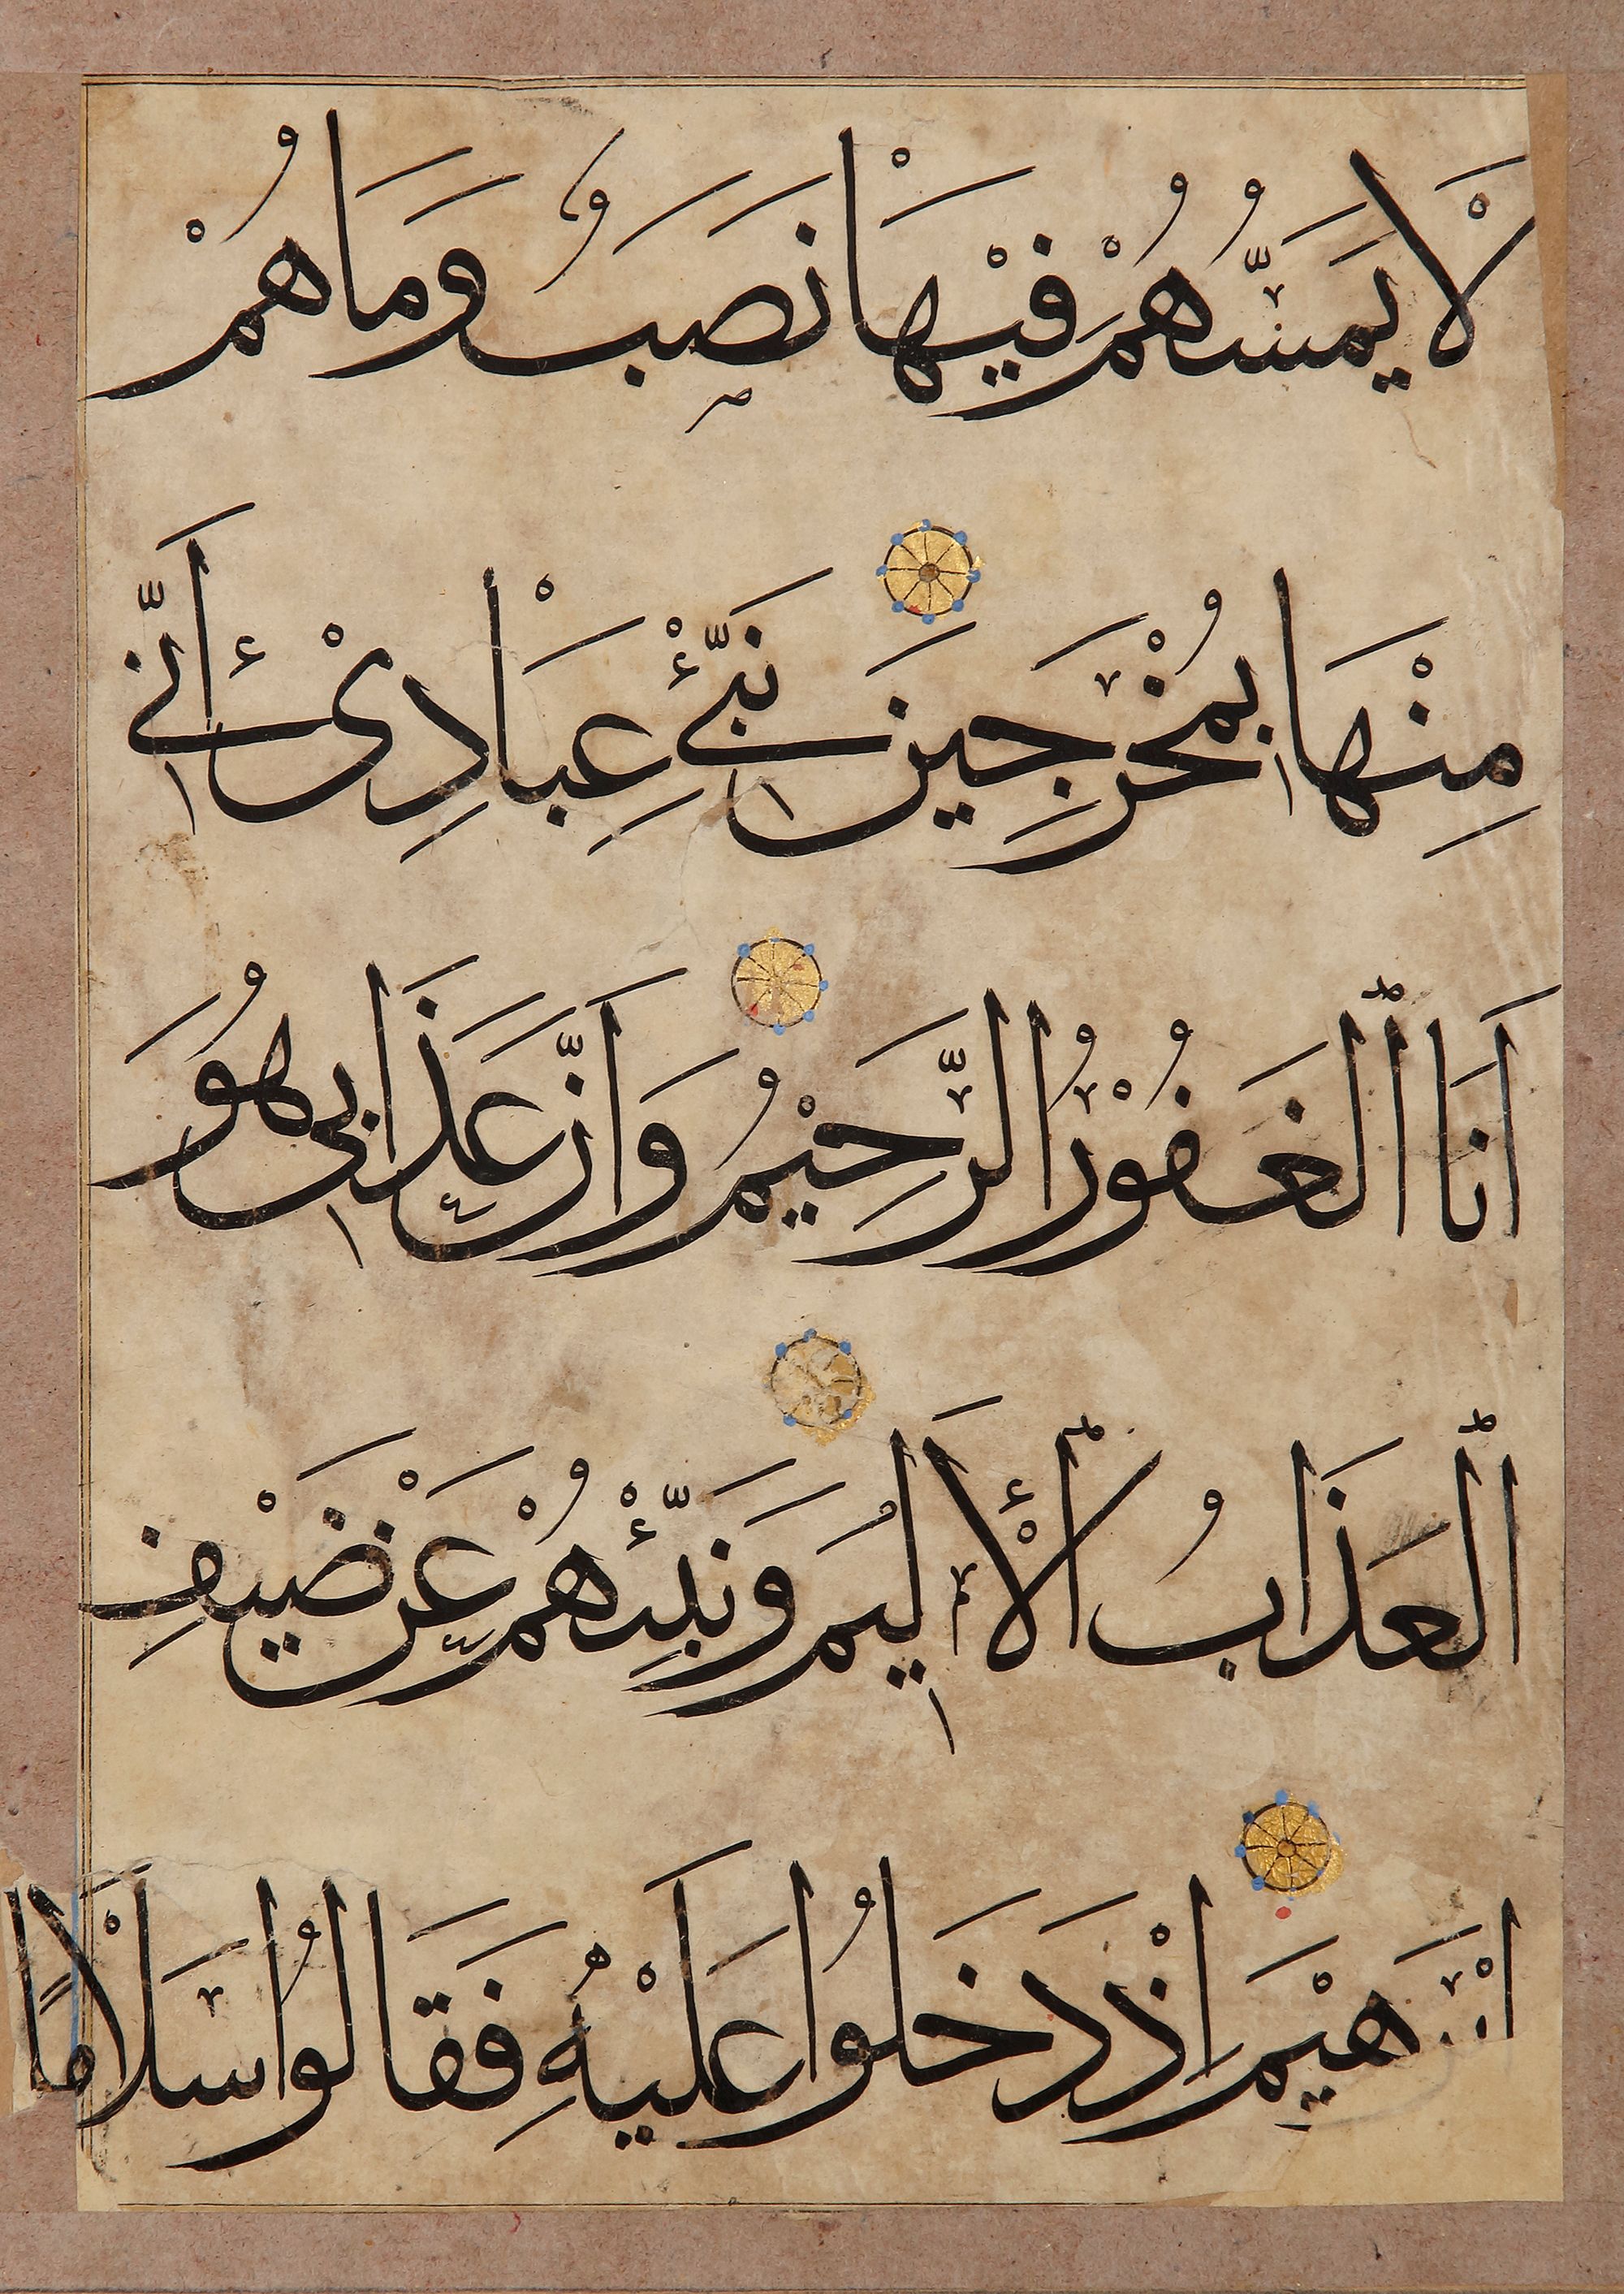 لَا يَمَسُّهُمْ فِيْهَا نَصَبٌ وَمَا هُمْ
مِنْهَا بِمُخْرَجِينَ نَبِّئْ عِبَادِيْ أَنِّي
أَنَا الْغَفُوْرُ الرَّحِيْمُ وَأَنَّ عَذَابِي هُوَ
الْعَذَابُ الْأَلِيمُ وَنَبِّئْهُمْ عَنْ ضَيْفِ
هِيْمَ إِذْ دَخَلُوا عَلَيْهِ فَقَالُوا سَلَامًا